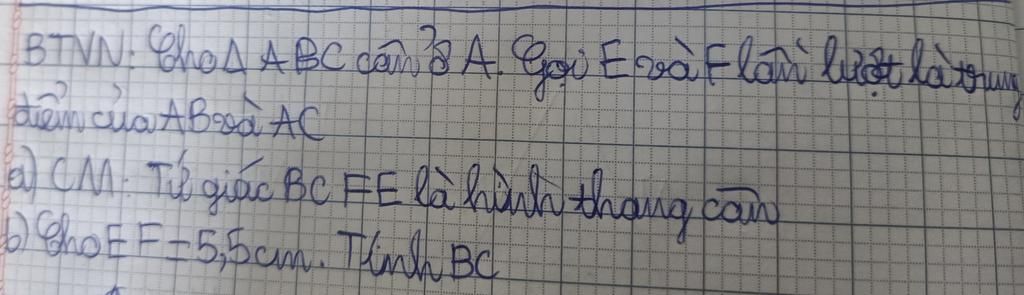 BTVN: Cho Δ ABC cân ở A. Gọi E và F lần lượt là trung
điểm của AB và AC
a) CM: Tứ giác BCFE là hình thang cân
b) Cho EF = 5,5cm. Tính BC